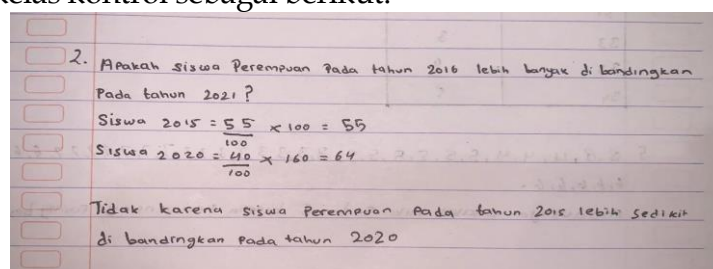 kelas kontrol sebagai berikut.
2. Apakah siswa Perempuan Pada tahun 2016 lebih banyak di bandingkan
Pada tahun 2021?
Siswa 2015 = 55/100 × 100 = 55
Siswa 2020 = 40/100 × 160 = 64
Tidak karena siswa Perempuan Pada tahun 2015 lebih sedikit
di bandingkan Pada tahun 2020